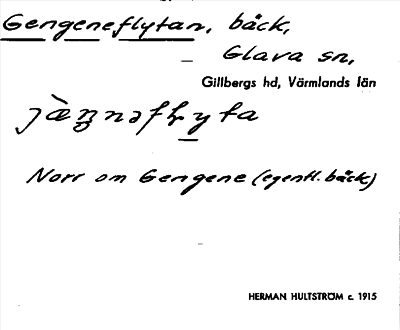 Gengeneflytan, bäck,
Glava sn,
Gillbergs hd, Värmlands län
Norr om Gengene (egentl. bäck)
HERMAN HULTSTRÖM c. 1915